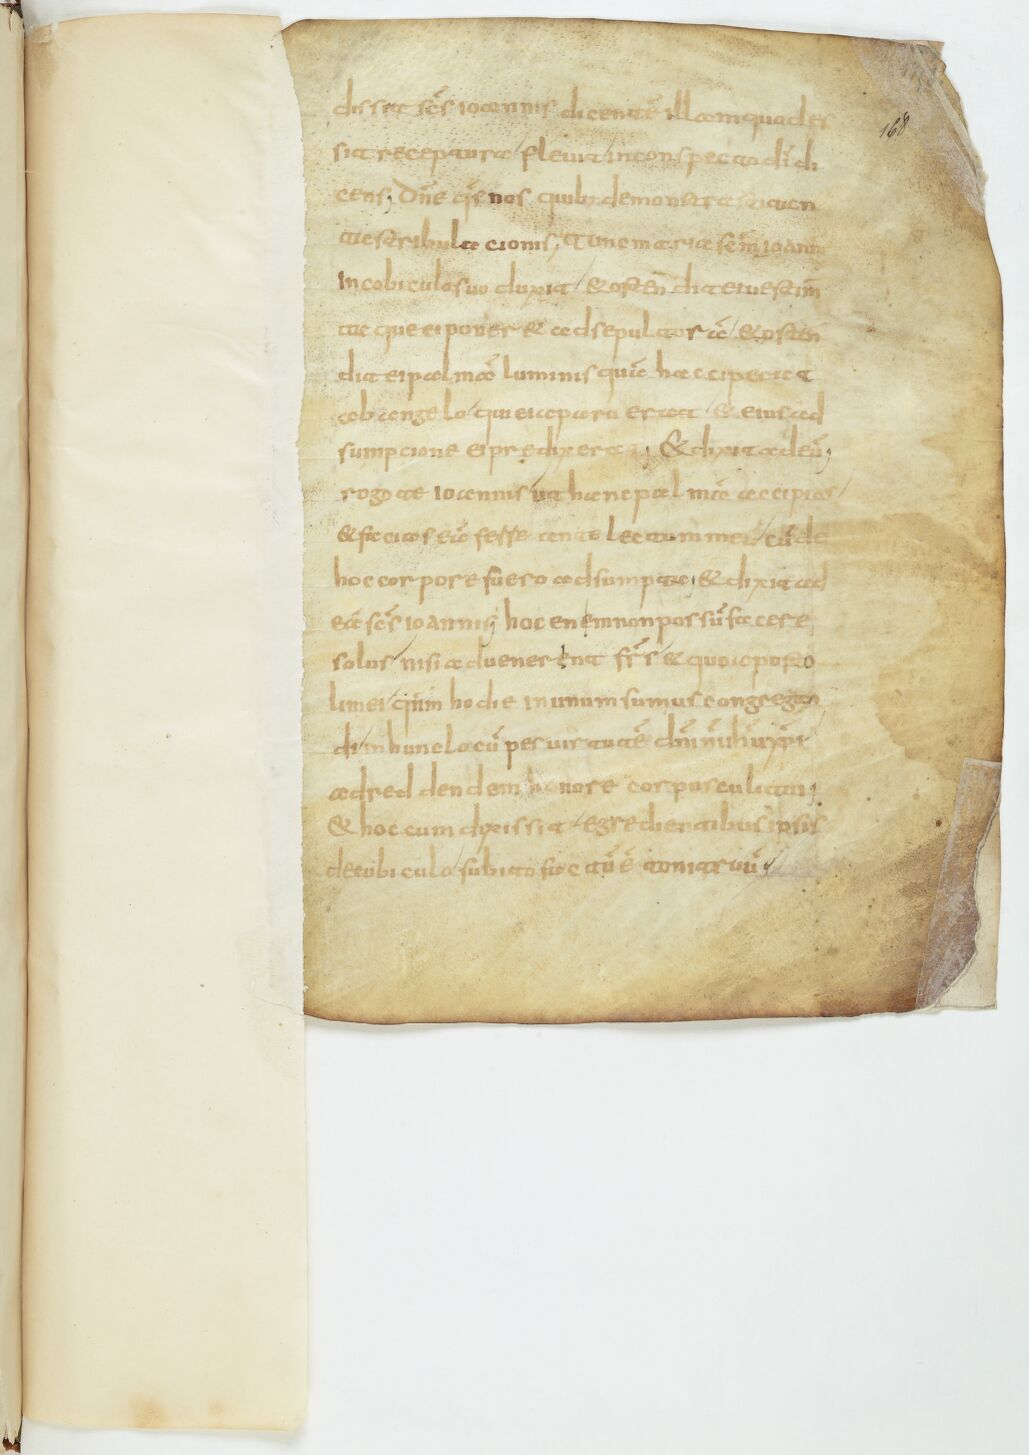 168
disset scs ioannis dicente illam quod es
sit receptura / fleuit / in conspecto di di
cens; Dne qs nos quibus demonstrasti uen
tis tribulacionis; Tunc maria scm ioann
In cobiculo suo duxit / & osten dit ei uestim
ta que ei poner & ad sepultorā / & osten
dit ei palmā luminis quā hacciperat
ab angelo / qui ei aparu erat / & eius ad
sumpcione ei predixerat; & dixit ad eū;
rogo te ioannis ut hanc palmā accipias /
& facias eā fesse ante lectum meū / cū de
hoc corpore fuero adsumpta; & dixit ad
eā scs ioannis; hoc enem non possū facere
solus / nisi aduenerint frs & quoaposto
li mei / quim hodie in unum sumus congregati
di / in hunc locū per uirtutē dni
ad reddendem honore corpusculi tui;
& hoc cum dixissit / egredientibus ipsis
de cubi culo / subito factū ē tonitruū;